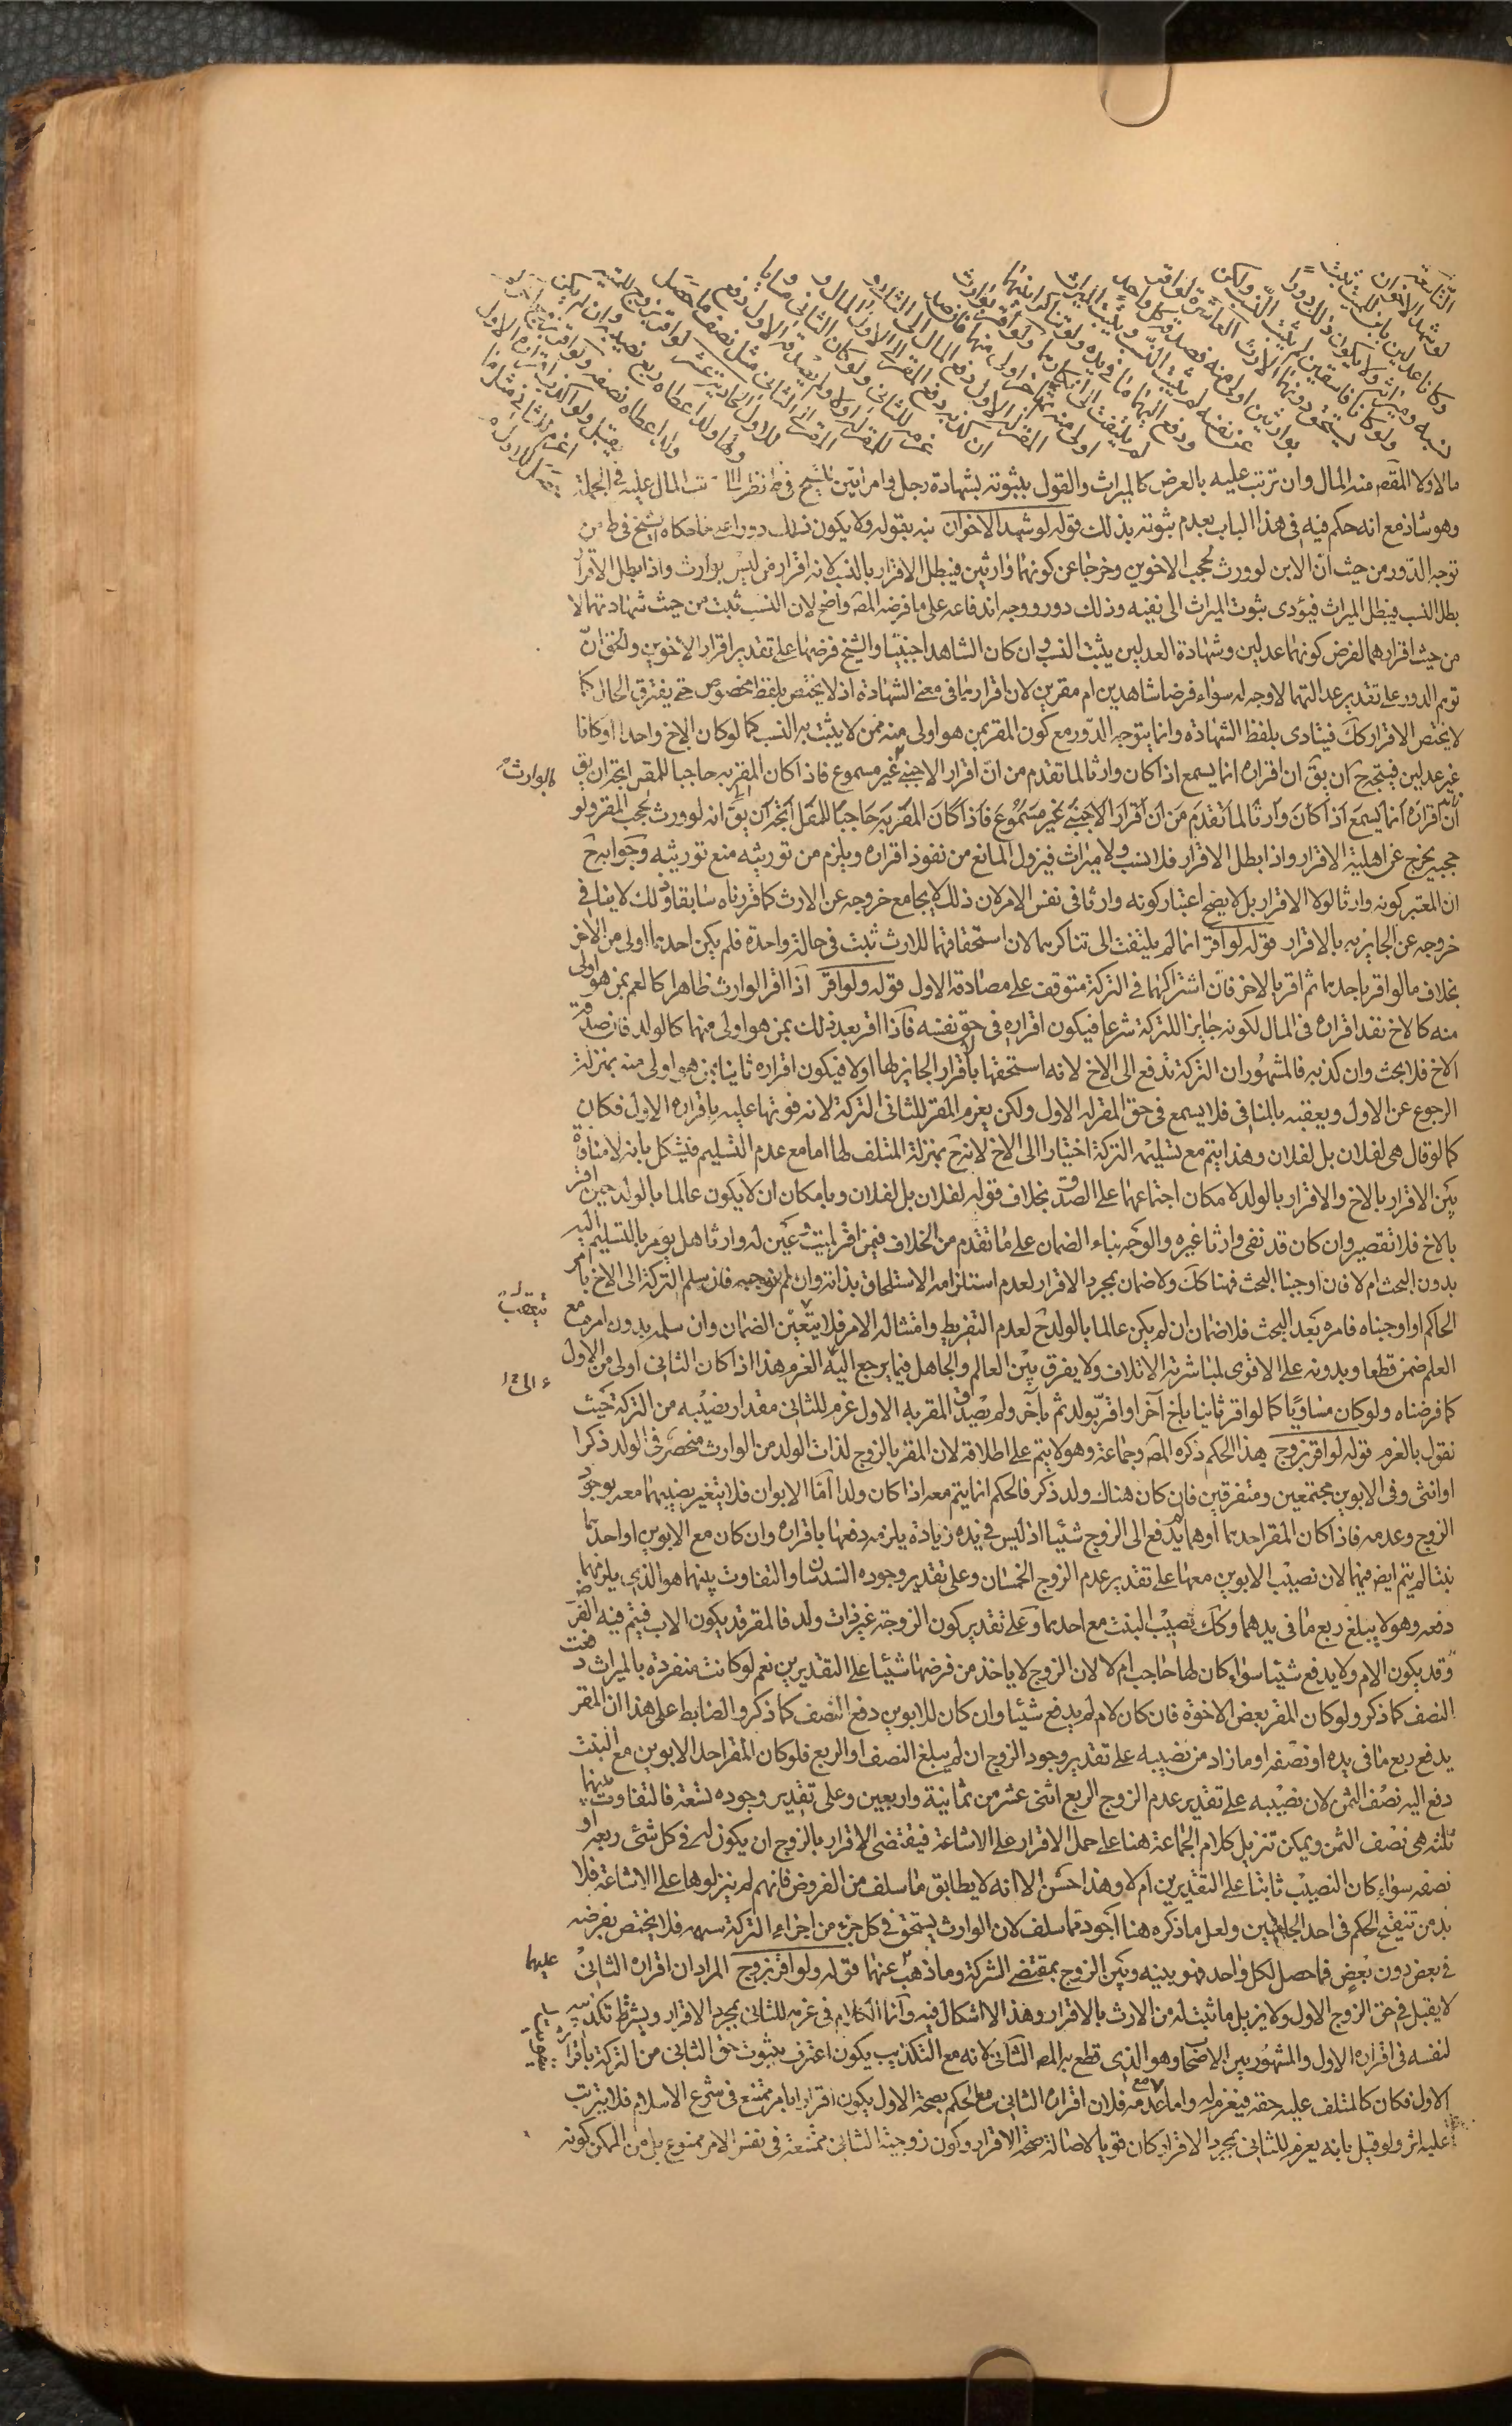 التاسعة
لو شهد الاخوان
وكانا عدلين بابن للميت ثبت
نسبه وميراثه ولا يكون ذلك دورا
ولو كانا فاسقين لم يثبت النسب ولكن
يستحق دونهما الارث العاشرة لو اقر
بوارثين اولى منه فصدقه كل واحد
عن نفسه لم يثبت النسب ويثبت الميراث
ودفع اليهما ما في يده ولو تناكرا بينهما
لم يلتفت الى تناكرهما ولو اقر بوارث
اولى منه ثم اقر باخر اولى منهما فان صدقه
المقر له الاول دفع المال الى الثاني و
ان كذبه دفع المقر الى الاول المال و
غرم للثاني ولو كان الثاني مساويا
للمقر له اولا ولم يصدقه الاول دفع
المقر الى الثاني مثل نصف ما حصل
للاول الحادية عشر لو اقر بزوج للميتة
ولها ولد اعطاه ربع نصيبه وان لم يكن
ولد اعطاه نصفه ولو اقر بزوج اخر لم
يقبل ولو اكذب اقراره الاول
اغرم للثاني مثل ما
حصل للاول
ما الاولا المقصد منه المال وان ترتب عليه بالعرض كالميراث والقول بثبوته بشهادة رجل وامراتين للشيخ في ط نظرا الى ترتب المال عليه في الجملة
وهو شاذ مع انه حكم فيه في هذا الباب بعدم ثبوته بذلك قوله لو شهد الاخوان نبه بقوله ولا يكون ذلك دورا على ما حكاه الشيخ في ط من
توجه الدور من حيث ان الابن لو ورث لحجب الاخوين وخرجا عن كونهما وارثين فيبطل الاقرار بالنسب لانه اقرار ممن ليس بوارث واذا بطل الاقرار
بطل النسب فيبطل الميراث فيؤدى ثبوت الميراث الى نفيه وذلك دور ووجه اندفاعه على ما فرضه المصـ واضح لان النسب ثبت من حيث شهادتهما لا
من حيث اقرارهما لفرض كونهما عدلين وشهادة العدلين يثبت النسب وان كان الشاهد اجنبيا والشيخ فرضها على تقدير اقرار الاخوين والحق ان
توهم الدور على تقدير عدالتهما لا وجه له سواء فرضا شاهدين ام مقرين لان اقرارهما في معنى الشهادة اذ لا يختص بلفظ مخصوص حتى يفترق الحال كما
لا يختص الاقرار كك فيتادى بلفظ الشهادة وانما يتوجه الدور مع كون المقر بمن هو اولى منه ممن لا يثبت به النسب كما لو كان الاخ واحدا او كانا
غير عدلين فيتجه ح ان يق ان اقراره انما يسمع اذا كان وارثا لما تقدم من ان اقرار الاجنبي غير مسموع فاذا كان المقر به حاجبا للمقر اتجه ان يق
بالوارث
ان اقراره انما يسمع اذا كان وارثا لما تقدم من ان اقرار الاجنبي غير مسموع فاذا كان المقر به حاجبا للمقر اتجه ان يق انه لو ورث لحجب المقر ولو
حجبه يخرج عن اهلية الاقرار واذا بطل الاقرار فلا نسب ولا ميراث فيزول المانع من نفوذ اقراره ويلزم من توريثه منع توريثه وجوابه ح
ان المعتبر كونه وارثا لولا الاقرار بل لا يصح اعتبار كونه وارثا في نفس الامر لان ذلك لا يجامع خروجه عن الارث كما قررناه سابقا وذلك لا ينافى
خروجه عن الجايزيه بالاقرار قوله لو اقر انما لم يلتفت الى تناكرهما لان استحقاقهما للارث ثبت في حالة واحدة فلم يكن احدهما اولى من الاخر
بخلاف ما لو اقر باحدهما ثم اقر بالاخر فان اشتراكهما في التركة متوقف على مصادقة الاول قوله ولو اقر اذا اقر الوارث ظاهرا كالعم بمن هو اولى
منه كالاخ نفذ اقراره في المال لكونه جايزا للتركة شرعا فيكون اقراره في حق نفسه فاذا اقر بعد ذلك بمن هو اولى منهما كالولد فان صدقه
الاخ فلا بحث وان كذبه فالمشهور ان التركة تدفع الى الاخ لانه استحقها باقرار الجايز لها اولا فيكون اقراره ثانيا بمن هو اولى منه بمنزلة
الرجوع عن الاول ويعقبه بالمنافى فلا يسمع في حق المقر له الاول ولكن يغرم المقر للثانى التركة لانه فوتها عليه باقراره الاول فكان
كما لو قال هى لفلان بل لفلان وهذا يتم مع تسليمه التركة اختيارا الى الاخ لانه ح بمنزلة المتلف لها اما مع عدم التسليم فيشكل بانه لا منافاة
بين الاقرار بالاخ والاقرار بالولد لامكان اجتماعهما على الصدق بخلاف قوله لفلان بل لفلان وبامكان ان لا يكون عالما بالولد حين اقر
بالاخ فلا تقصير وان كان قد نفى وارثا غيره والوجه بناء الضمان على ما تقدم من الخلاف فيمن اقر لميت وعين له وارثا هل يؤمر بالتسليم اليه
بدون البحث ام لا فان اوجبنا البحث فهنا كك ولا ضمان بمجرد الاقرار لعدم استلزامه الاستلحاق بذاته وان لم نوجبه فان سلم التركة الى الاخ بامر
الحاكم او اوجبناه فامره بعد البحث فلا ضمان ان لم يكن عالما بالولد ح لعدم التفريط وامتثاله الامر فلا يتعين الضمان وان سلمه بدون امره مع
العلم ضمن قطعا وبدونه على الاقوى لمباشرته الاتلاف ولا يفرق بين العالم والجاهل فيما يرجع اليه الغرم هذا اذا كان الثانى اولى من الاول
كما فرضناه ولو كان مساويا كما لو اقر ثانيا باخ آخر او اقر بولد ثم بآخر ولم يصدق المقر به الاول غرم للثانى مقدار نصيبه من التركة حيث
نقول بالغرم قوله لو اقر بزوج هذا الحكم ذكره المصـ وجماعة وهو لا يتم على اطلاقه لان المقر بالزوج لذات الولد من الوارث منحصر في الولد ذكرا
او انثى وفى الابوين مجتمعين ومتفرقين فان كان هناك ولد ذكر فالحكم انما يتم معه اذا كان ولدا اما الابوان فلا يتغير نصيبهما معه بوجود
الزوج وعدمه فاذا كان المقر احدهما او هما لم يدفع الى الزوج شيئا اذ ليس في يده زيادة يلزمه دفعها باقراره وان كان مع الابوين او احدهما
بنتا لم يتم ايضا فيهما لان نصيب الابوين معها على تقدير عدم الزوج الخمسان وعلى تقدير وجوده السدسان والتفاوت بينهما هو الذى يلزمهما
دفعه وهو لا يبلغ ربع ما فى يدهما وكك نصيب البنت مع احدهما وعلى تقدير كون الزوجة غير ذات ولد فالمقر قد يكون الاب فيتم فيه الفرض
وقد يكون الام ولا يدفع شيئا سواء كان لها حاجب ام لا لان الزوج لا ياخذ من فرضها شيئا على التقديرين نعم لو كانت منفردة بالميراث دفعت
النصف كما ذكر ولو كان المقر بعض الاخوة فان كان لام لم يدفع شيئا وان كان للابوين دفع النصف كما ذكر والضابط على هذا ان المقر
يدفع ربع ما فى يده او نصفه او ما زاد من نصيبه على تقدير وجود الزوج ان لم يبلغ النصف او الربع فلو كان المقر احد الابوين مع البنت
دفع اليه نصف الثمن لان نصيبه على تقدير عدم الزوج الربع اثنى عشر من ثمانية واربعين وعلى تقدير وجوده تسعة فالتفاوت بينهما
ثلثة هى نصف الثمن ويمكن تنزيل كلام الجماعة هنا على حمل الاقرار على الاشاعة فيقتضى الاقرار بالزوج ان يكون له في كل شئ ربعه او
نصفه سواء كان النصيب ثابتا على التقديرين ام لا وهذا حسن الا انه لا يطابق ما سلف من الفروض فانهم لم ينزلوها على الاشاعة فلا
بد من تنقيح الحكم في احد الجانبين ولعل ما ذكره هنا اجود مما سلف لان الوارث يستحق في كل جزء من اجزاء التركة سهمه فلا يختص بفرضه
في بعض دون بعض فما حصل لكل واحد فهو بينه وبين الزوج بمقتضى الشركة وما ذهب عنهما قوله ولو اقر بزوج المراد ان اقراره الثانى
عليهما
لا يقبل في حق الزوج الاول ولا يزيل ما ثبت له من الارث بالاقرار وهذا لا اشكال فيه وانما الكلام في غرمه للثانى بمجرد الاقرار ويشترط تكذيبه
لنفسه في اقراره الاول والمشهور بين الاصحاب وهو الذى قطع به المصـ الثانى لانه مع التكذيب يكون اعترف بثبوت حق الثانى من التركة باقراره
الاول فكان كالمتلف عليه حقه فيغرم له واما مع عدمه فلان اقراره الثانى مع الحكم بصحة الاول يكون اقرارا بامر ممتنع في شرع الاسلام فلا يترتب
عليه اثر ولو قيل بانه يغرم للثانى بمجرد الاقرار كان قويا لاصالة صحة الاقرار وكون زوجية الثانى ممتنعة في نفس الامر ممنوع بل من الممكن كونه